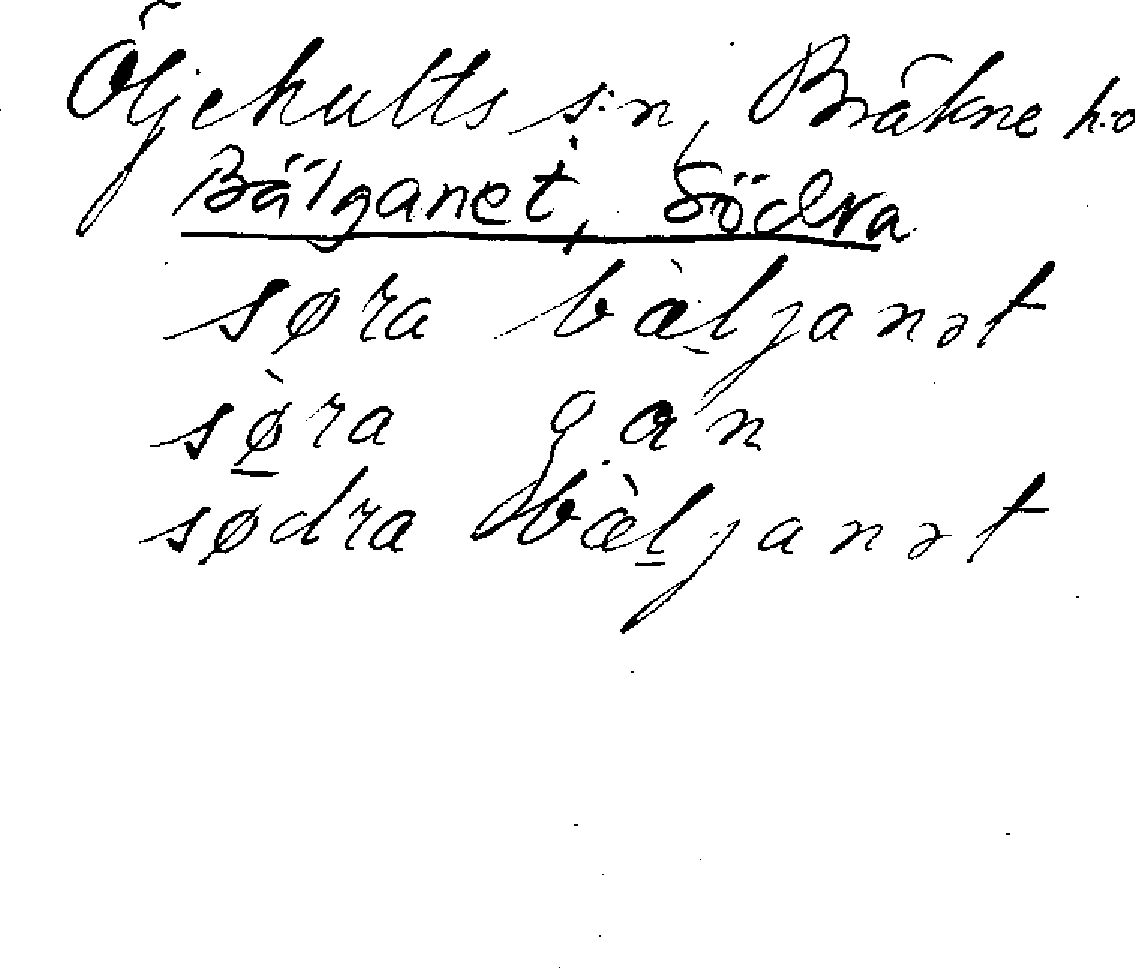 Öljehults s:n, Bräkne h:d
Bälganet, Södra
søra bæ̀l̠janət
sø̠̀ra gan
sødra bæ̀l̠janət